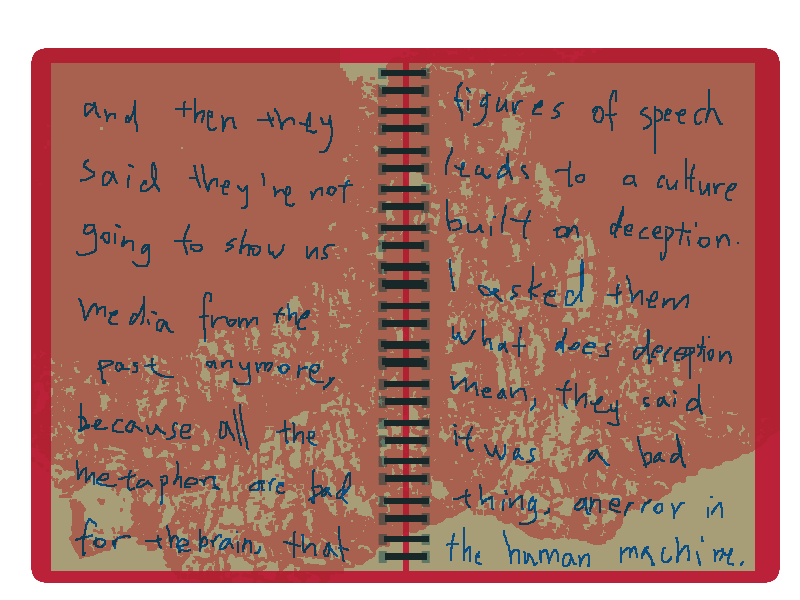 and then they
said they're not
going to show us
media from the
past anymore,
because all the
metaphors are bad
for the brain, that
figures of speech
leads to a culture
built on deception.
I asked them
what does deception
mean, they said
it was a bad
thing, an error in
the human machine.